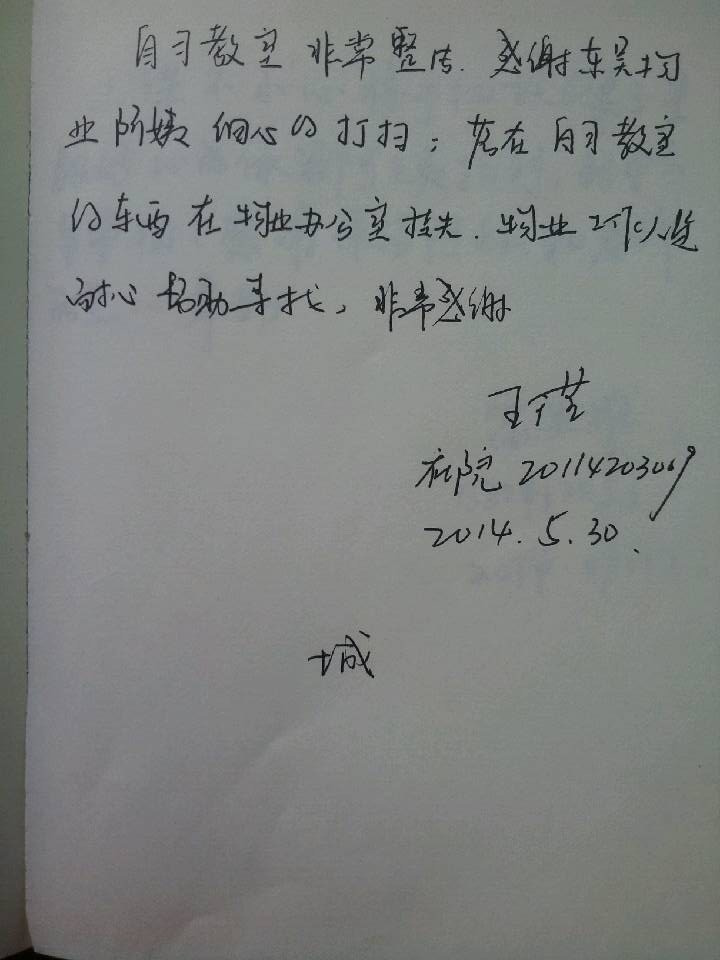 自习教室非常整洁.感谢东吴物
业阿姨细心的打扫；落在自习教室
的东西在物业办公室挂失.物业工作人员
耐心帮助寻找，非常感谢
王
院 2011420309
2014.5.30.
城